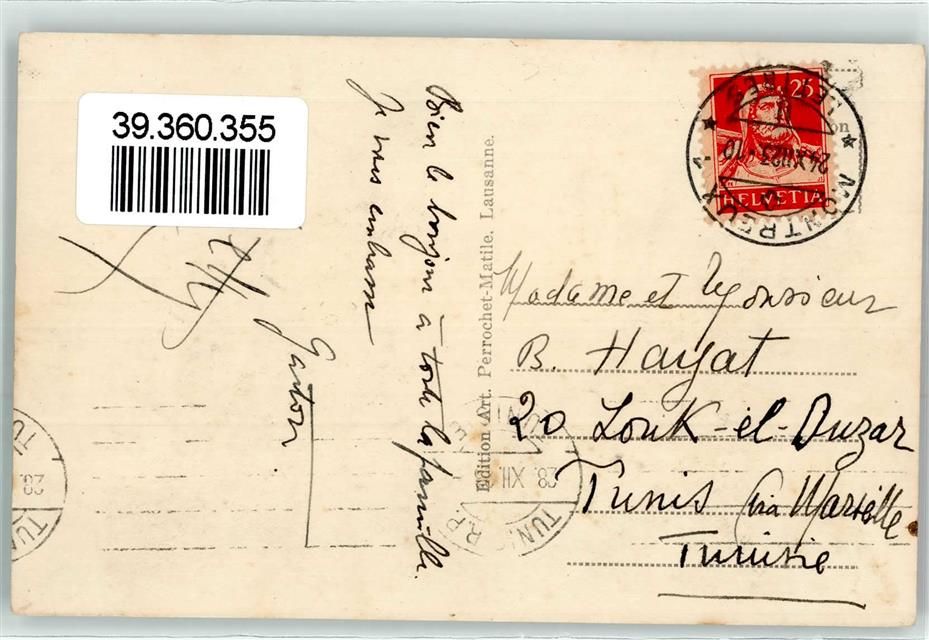 39.360.355
Bien le bonjour à toute la famille.
Je vous embrasse
Gaston
Edition Art. Perrochet-Matile, Lausanne.
25
HELVETIA
MONTREUX 1
LETTRES
24.XII.23.-10
Madame et Monsieur
B. Hayat
20 Souk-el-Ouzar
Tunis via Marseille
Tunisie
TUNIS R.P.
28 XII
TU
28
TUN